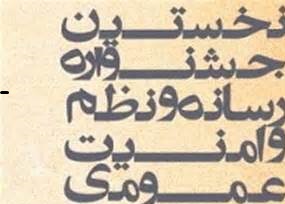 نخستین
جشنواره
رسانه و نظم
و امنیت
عمومی